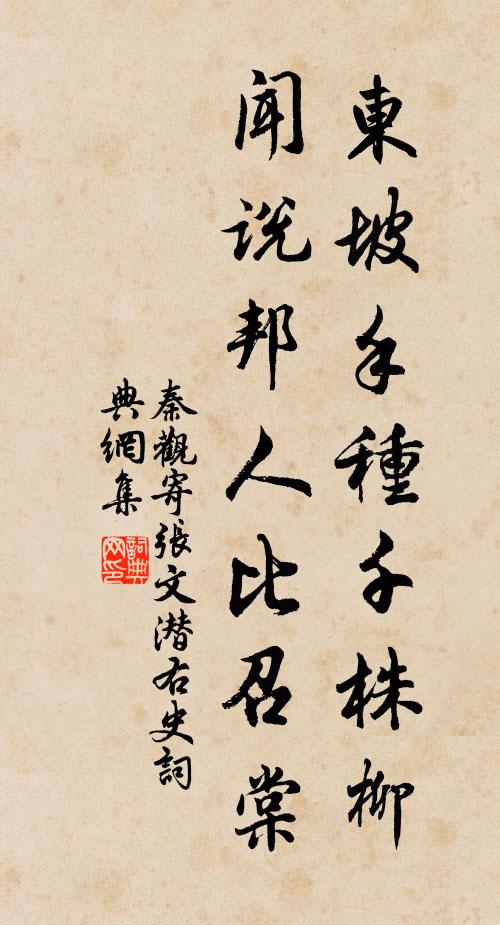 東坡手種千株柳
聞説邦人比召棠
秦觀寄張文潜右史詞
典網集
詞典
网印